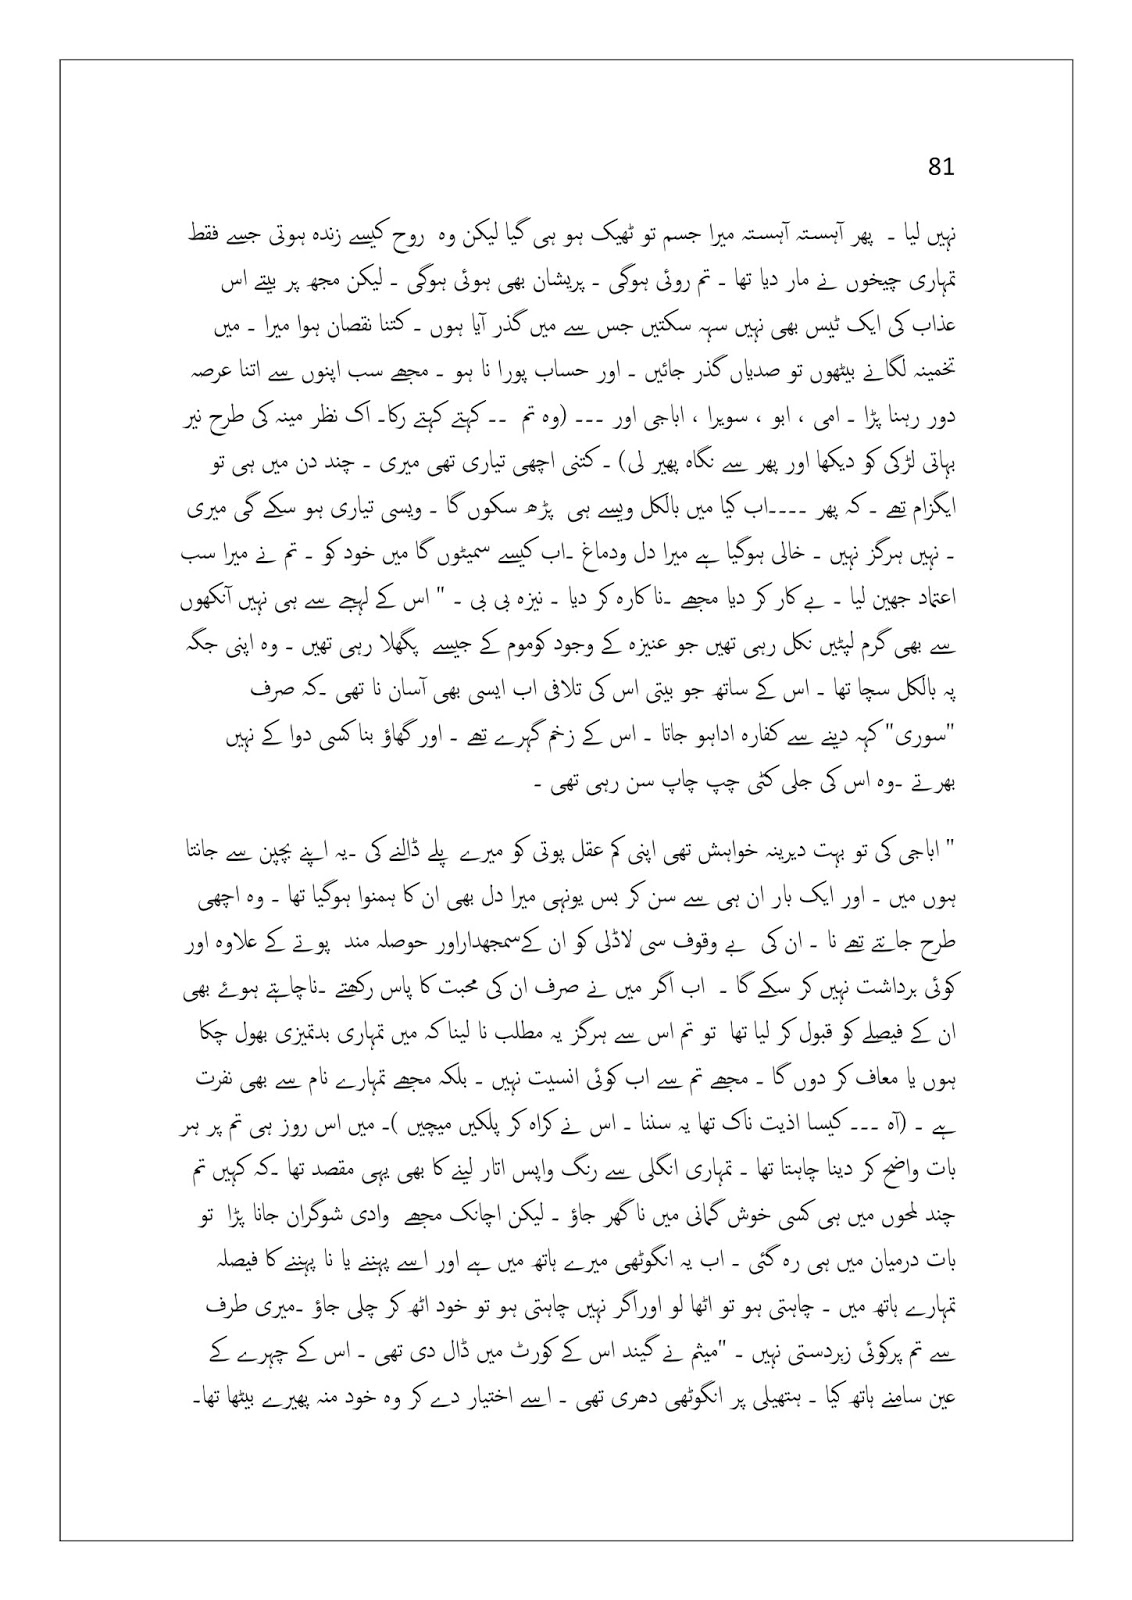 81
نہیں لیا ۔ پھر آہستہ آہستہ میرا جسم تو ٹھیک ہو ہی گیا لیکن وہ روح کیسے زندہ ہوتی جسے فقط
تمہاری چیخوں نے مار دیا تھا ۔ تم روئی ہوگی ۔ پریشان بھی ہوئی ہوگی ۔ لیکن مجھ پر بیتے اس
عذاب کی ایک ٹیس بھی نہیں سہہ سکتیں جس سے میں گذر آیا ہوں ۔ کتنا نقصان ہوا میرا ۔ میں
تخمینہ لگانے بیٹھوں تو صدیاں گذر جائیں ۔ اور حساب پورا نا ہو ۔ مجھے سب اپنوں سے اتنا عرصہ
دور رہنا پڑا ۔ امی ، ابو ، سویرا ، اباجی اور ۔۔۔ (وہ تم ۔۔ کہتے کہتے رکا۔ اک نظر مینہ کی طرح نیر
بہاتی لڑکی کو دیکھا اور پھر سے نگاہ پھیر لی) ۔ کتنی اچھی تیاری تھی میری ۔ چند دن میں ہی تو
ایگزام تھے ۔ کہ پھر ۔۔۔۔اب کیا میں بالکل ویسے ہی پڑھ سکوں گا ۔ ویسی تیاری ہو سکے گی میری
۔ نہیں ہرگز نہیں ۔ خالی ہوگیا ہے میرا دل ودماغ ۔اب کیسے سمیٹوں گا میں خود کو ۔ تم نے میرا سب
اعتماد چھین لیا ۔ بے کار کر دیا مجھے ۔ناکارہ کر دیا ۔ نیزہ بی بی ۔ " اس کے لہجے سے ہی نہیں آنکھوں
سے بھی گرم لپٹیں نکل رہی تھیں جو عنیزہ کے وجود کوموم کے جیسے پگھلا رہی تھیں ۔ وہ اپنی جگہ
پہ بالکل سچا تھا ۔ اس کے ساتھ جو بیتی اس کی تلافی اب ایسی بھی آسان نا تھی ۔کہ صرف
"سوری" کہہ دینے سے کفارہ اداہو جاتا ۔ اس کے زخم گہرے تھے ۔ اور گھاؤ بنا کسی دوا کے نہیں
بھرتے ۔وہ اس کی جلی کٹی چپ چاپ سن رہی تھی ۔
" اباجی کی تو بہت دیرینہ خواہش تھی اپنی کم عقل پوتی کو میرے پلے ڈالنے کی ۔یہ اپنے بچپن سے جانتا
ہوں میں ۔ اور ایک بار ان ہی سے سن کر بس یونہی میرا دل بھی ان کا ہمنوا ہوگیا تھا ۔ وہ اچھی
طرح جانتے تھے نا ۔ ان کی بے وقوف سی لاڈلی کو ان کےسمجھداراور حوصلہ مند پوتے کے علاوہ اور
کوئی برداشت نہیں کر سکے گا ۔ اب اگر میں نے صرف ان کی محبت کا پاس رکھتے ۔ناچاہتے ہوئے بھی
ان کے فیصلے کو قبول کر لیا تھا تو تم اس سے ہرگز یہ مطلب نا لینا کہ میں تمہاری بدتمیزی بھول چکا
ہوں یا معاف کر دوں گا ۔ مجھے تم سے اب کوئی انسیت نہیں ۔ بلکہ مجھے تمہارے نام سے بھی نفرت
ہے ۔ (آہ ۔۔۔ کیسا اذیت ناک تھا یہ سننا ۔ اس نے کراہ کر پلکیں میچیں )۔ میں اس روز ہی تم پر ہر
بات واضح کر دینا چاہتا تھا ۔ تمہاری انگلی سے رنگ واپس اتار لینے کا بھی یہی مقصد تھا ۔کہ کہیں تم
چند لمحوں میں ہی کسی خوش گمانی میں نا گھر جاؤ ۔ لیکن اچانک مجھے وادی شوگران جانا پڑا تو
بات درمیان میں ہی رہ گئی ۔ اب یہ انگوٹھی میرے ہاتھ میں ہے اور اسے پہننے یا نا پہننے کا فیصلہ
تمہارے ہاتھ میں ۔ چاہتی ہو تو اٹھا لو اوراگر نہیں چاہتی ہو تو خود اٹھ کر چلی جاؤ ۔میری طرف
سے تم پرکوئی زبردستی نہیں ۔ "میثم نے گیند اس کے کورٹ میں ڈال دی تھی ۔ اس کے چہرے کے
عین سامنے ہاتھ کیا ۔ ہتھیلی پر انگوٹھی دھری تھی ۔ اسے اختیار دے کر وہ خود منہ پھیرے بیٹھا تھا۔